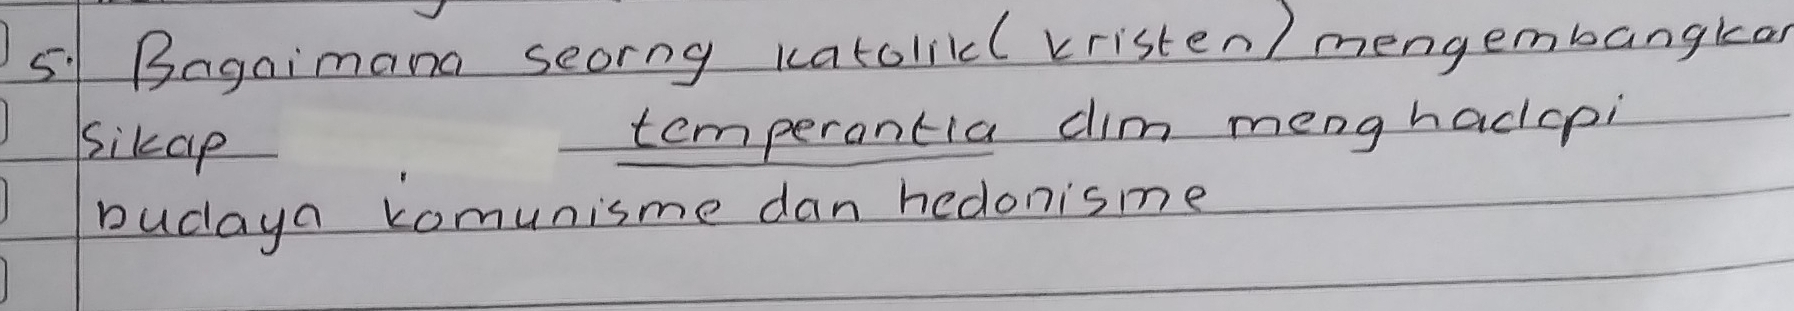 5. Bagaimana seorng katolik (kristen) mengembangkan
sikap temperantia dlm menghadapi
budaya komunisme dan hedonisme